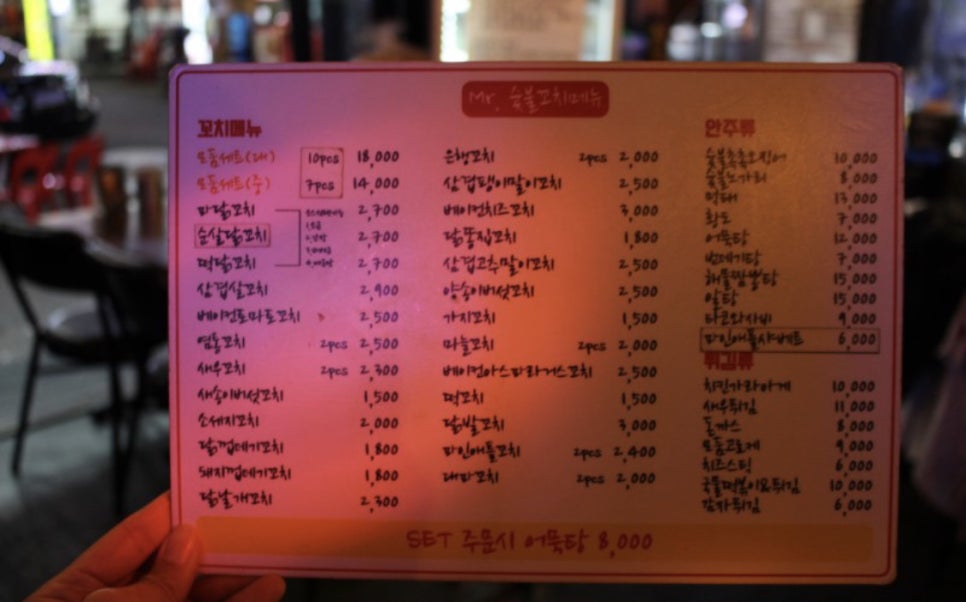 Mr. 숯불꼬치메뉴
꼬치메뉴
모듬세트(대) 10pcs 18,000
모듬세트(중) 7pcs 14,000
파닭꼬치 2,700
순살닭꼬치 2,700
떡닭꼬치 2,700
삼겹살꼬치 2,900
베이컨토마토꼬치 2,500
염통꼬치 2pcs 2,500
새우꼬치 2pcs 2,300
새송이버섯꼬치 1,500
소세지꼬치 2,000
닭껍데기꼬치 1,800
돼지껍데기꼬치 1,800
닭날개꼬치 2,300
은행꼬치 2pcs 2,000
삼겹팽이말이꼬치 2,500
베이컨치즈꼬치 3,000
닭똥집꼬치 1,800
삼겹고추말이꼬치 2,500
양송이버섯꼬치 2,500
가지꼬치 1,500
마늘꼬치 2pcs 2,000
베이컨아스파라거스꼬치 2,500
떡꼬치 1,500
닭발꼬치 3,000
파인애플꼬치 2pcs 2,400
대파꼬치 2pcs 2,000
안주류
숯불촉촉오징어 10,000
숯불노가리 8,000
먹태 13,000
황도 7,000
어묵탕 12,000
번데기탕 7,000
해물짬뽕탕 15,000
알탕 15,000
타코와사비 9,000
파인애플샤베트 6,000
튀김류
치킨가라아게 10,000
새우튀김 11,000
돈까스 8,000
모듬고로케 9,000
치즈스틱 6,000
국물떡볶이&튀김 10,000
감자튀김 6,000
SET 주문시 어묵탕 8,000